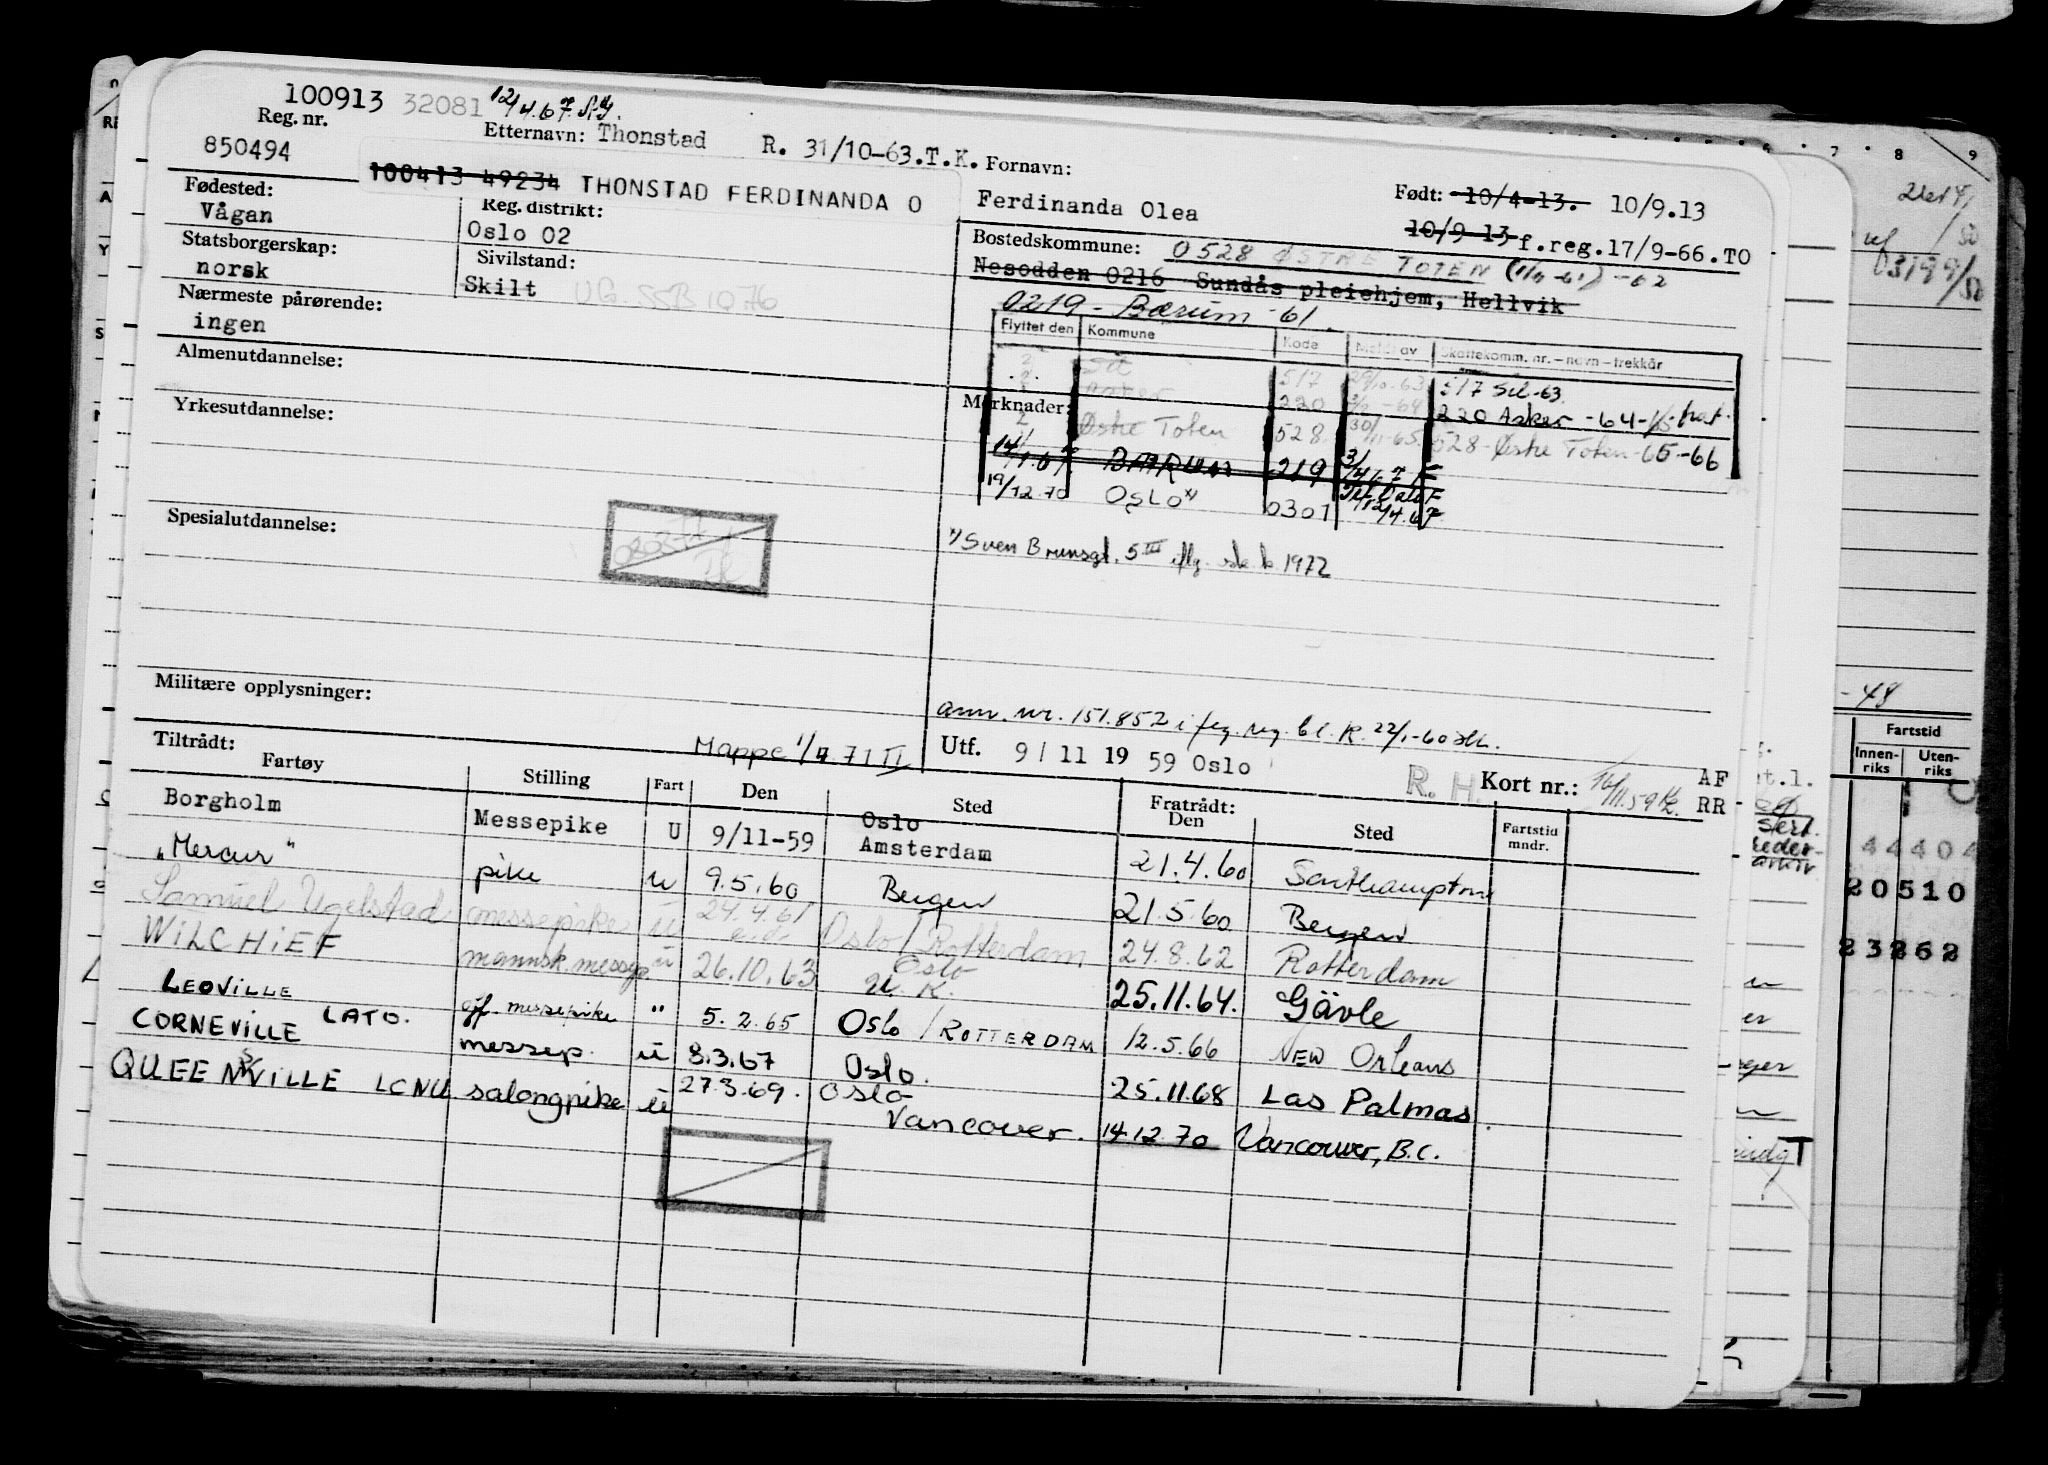 100913 32081 12/4.67.
Reg. nr.
850494
Etternavn: Thonstad R. 31/10-63.T.K. Fornavn:
100413 49234 THONSTAD FERDINANDA O
Ferdinanda Olea
Født: 10/4-13. 10/9.13
10/9 13 f.reg.17/9-66.TO
Fødested:
Vågan
Reg. distrikt:
Oslo 02
Statsborgerskap:
norsk
Sivilstand:
Skilt UG. SSB 1076
Nærmeste pårørende:
ingen
Bostedskommune: 0528 ØSTRE TOTEN -62
Nesodden 0216 Sundås pleiehjem, Hellvik
0219 - Bærum -61.
Flyttet den Kommune Kode Meldt av Skattekomm. nr. – navn – trekkår
517 29/10-63 517 Sel-63
Asker 220 -64 220 Asker -64-
Østre Toten 528 30/11-65 528-Østre Toten-65-66
14/1.67 BÆRUM 219
19/12.70 OSLO x) 0301
Almenutdannelse:
Yrkesutdannelse:
Merknader:
x) Sven Brunsgt. 5 III 1972
Spesialutdannelse:
Militære opplysninger:
ann. nr. 151.852 i reg. bl. R. 22/1-60
Mappe 1/4 71
Utf. 9/11 19 59 Oslo
R. H. Kort nr.: 16/11.59 AF
RR
Tiltrådt:
Fartøy Stilling Fart Den Sted Fratrådt: Den Sted Fartstid mndr.
Borgholm Messepike U 9/11-59 Oslo Amsterdam 21.4.60 Southampton
"Mercur" pike u 9.5.60 Bergen 21.5.60 Bergen
Samuel Ugelstad messepike u 24.4.61 Oslo/Rotterdam 24.8.62 Rotterdam
WILCHIEF mannsk. messep. u 26.10.63 Oslo 25.11.64. Gävle
LEOVILLE LATO. off. messepike " 5.2.65 Oslo / ROTTERDAM 12.5.66 NEW Orleans
CORNEVILLE messep. u 8.3.67 Oslo. 25.11.68 Las Palmas
QUEENSVILLE LCNU salongpike u 27.3.69. Oslo Vancouver. 14.12.70 Vancouver, B.C.
7 8 9
-48
Fartstid
Innenriks Utenriks
4 4 4 0 4
2 0 5 1 0
2 3 2 6 2